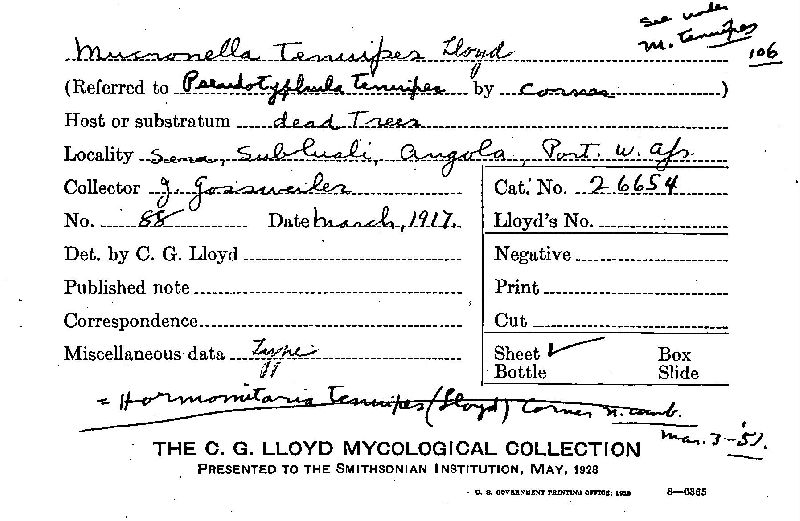 see under
M. tenuipes
106
Mucronella Tenuipes Lloyd
(Referred to Pseudotyphula tenuipes by Corner)
Host or substratum dead Trees
Locality Subluali, Angola, Port. W. Afr
Collector J. Gossweiler
Cat. No. 26654
No. 88 Date March, 1917.
Lloyd's No.
Det. by C. G. Lloyd
Negative
Published note
Print
Correspondence
Cut
Miscellaneous data Type
Sheet ✓ Box
Bottle Slide
= Hormomitaria Tenuipes (Lloyd) Corner n. comb.
Mar. 3-51.
THE C. G. LLOYD MYCOLOGICAL COLLECTION
PRESENTED TO THE SMITHSONIAN INSTITUTION, MAY, 1928
U. S. GOVERNMENT PRINTING OFFICE: 1928 8—6365